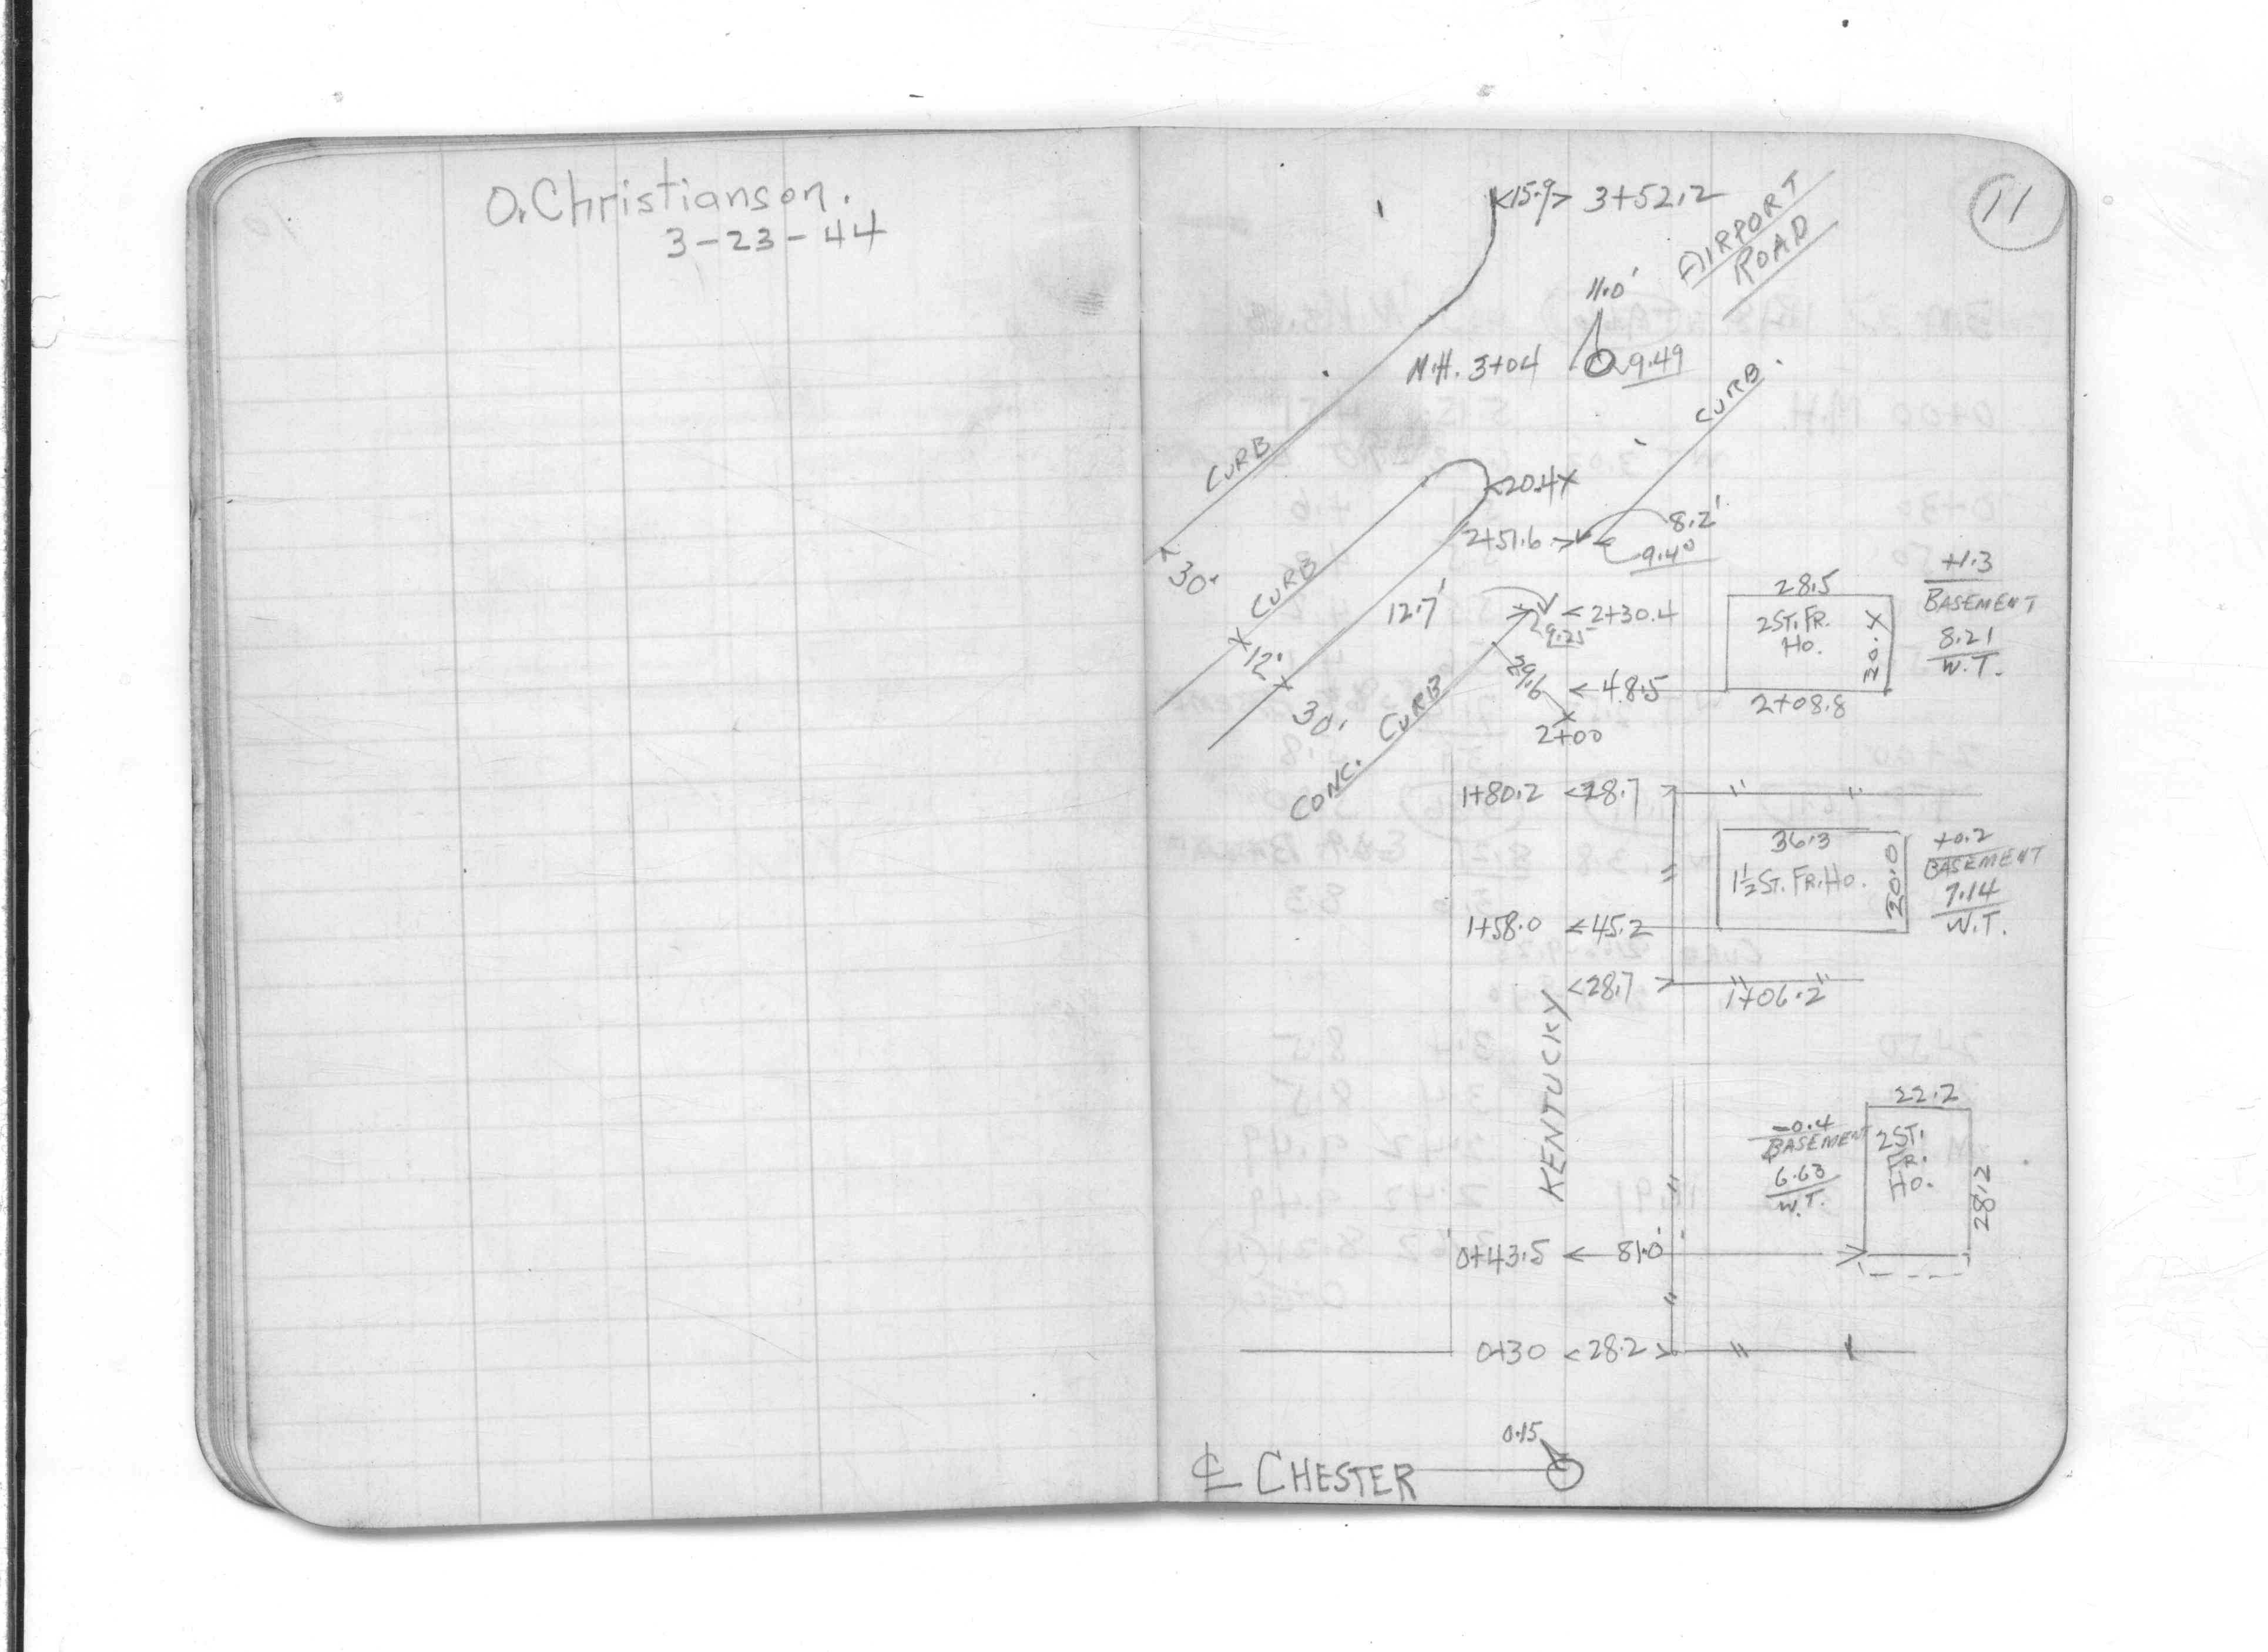 O. Christianson.
3-23-44
11
<15.9> 3+52.2
AIRPORT
ROAD
11.0'
M.H. 3+04
9.49
CURB
CURB
<20.4
2+51.6
8.2'
9.40
30.
CURB
12.7'
<2+30.4
9.25
28.5
2ST.FR.
Ho.
20.4
+1.3
BASEMENT
8.21
W.T.
12'
39.6
<48.5
2+08.8
30.
CONC. CURB
2+00
1+80.2 <28.7>
36.3
1½ST.FR.Ho.
20.0
+0.2
BASEMENT
7.14
W.T.
1+58.0 <45.2
<28.7>
1+06.2
KENTUCKY
22.2
2ST.
FR.
Ho.
28.2
-0.4
BASEMENT
6.63
W.T.
0+43.5 <81.0'
0+30 <28.2>
0.15
℄ CHESTER